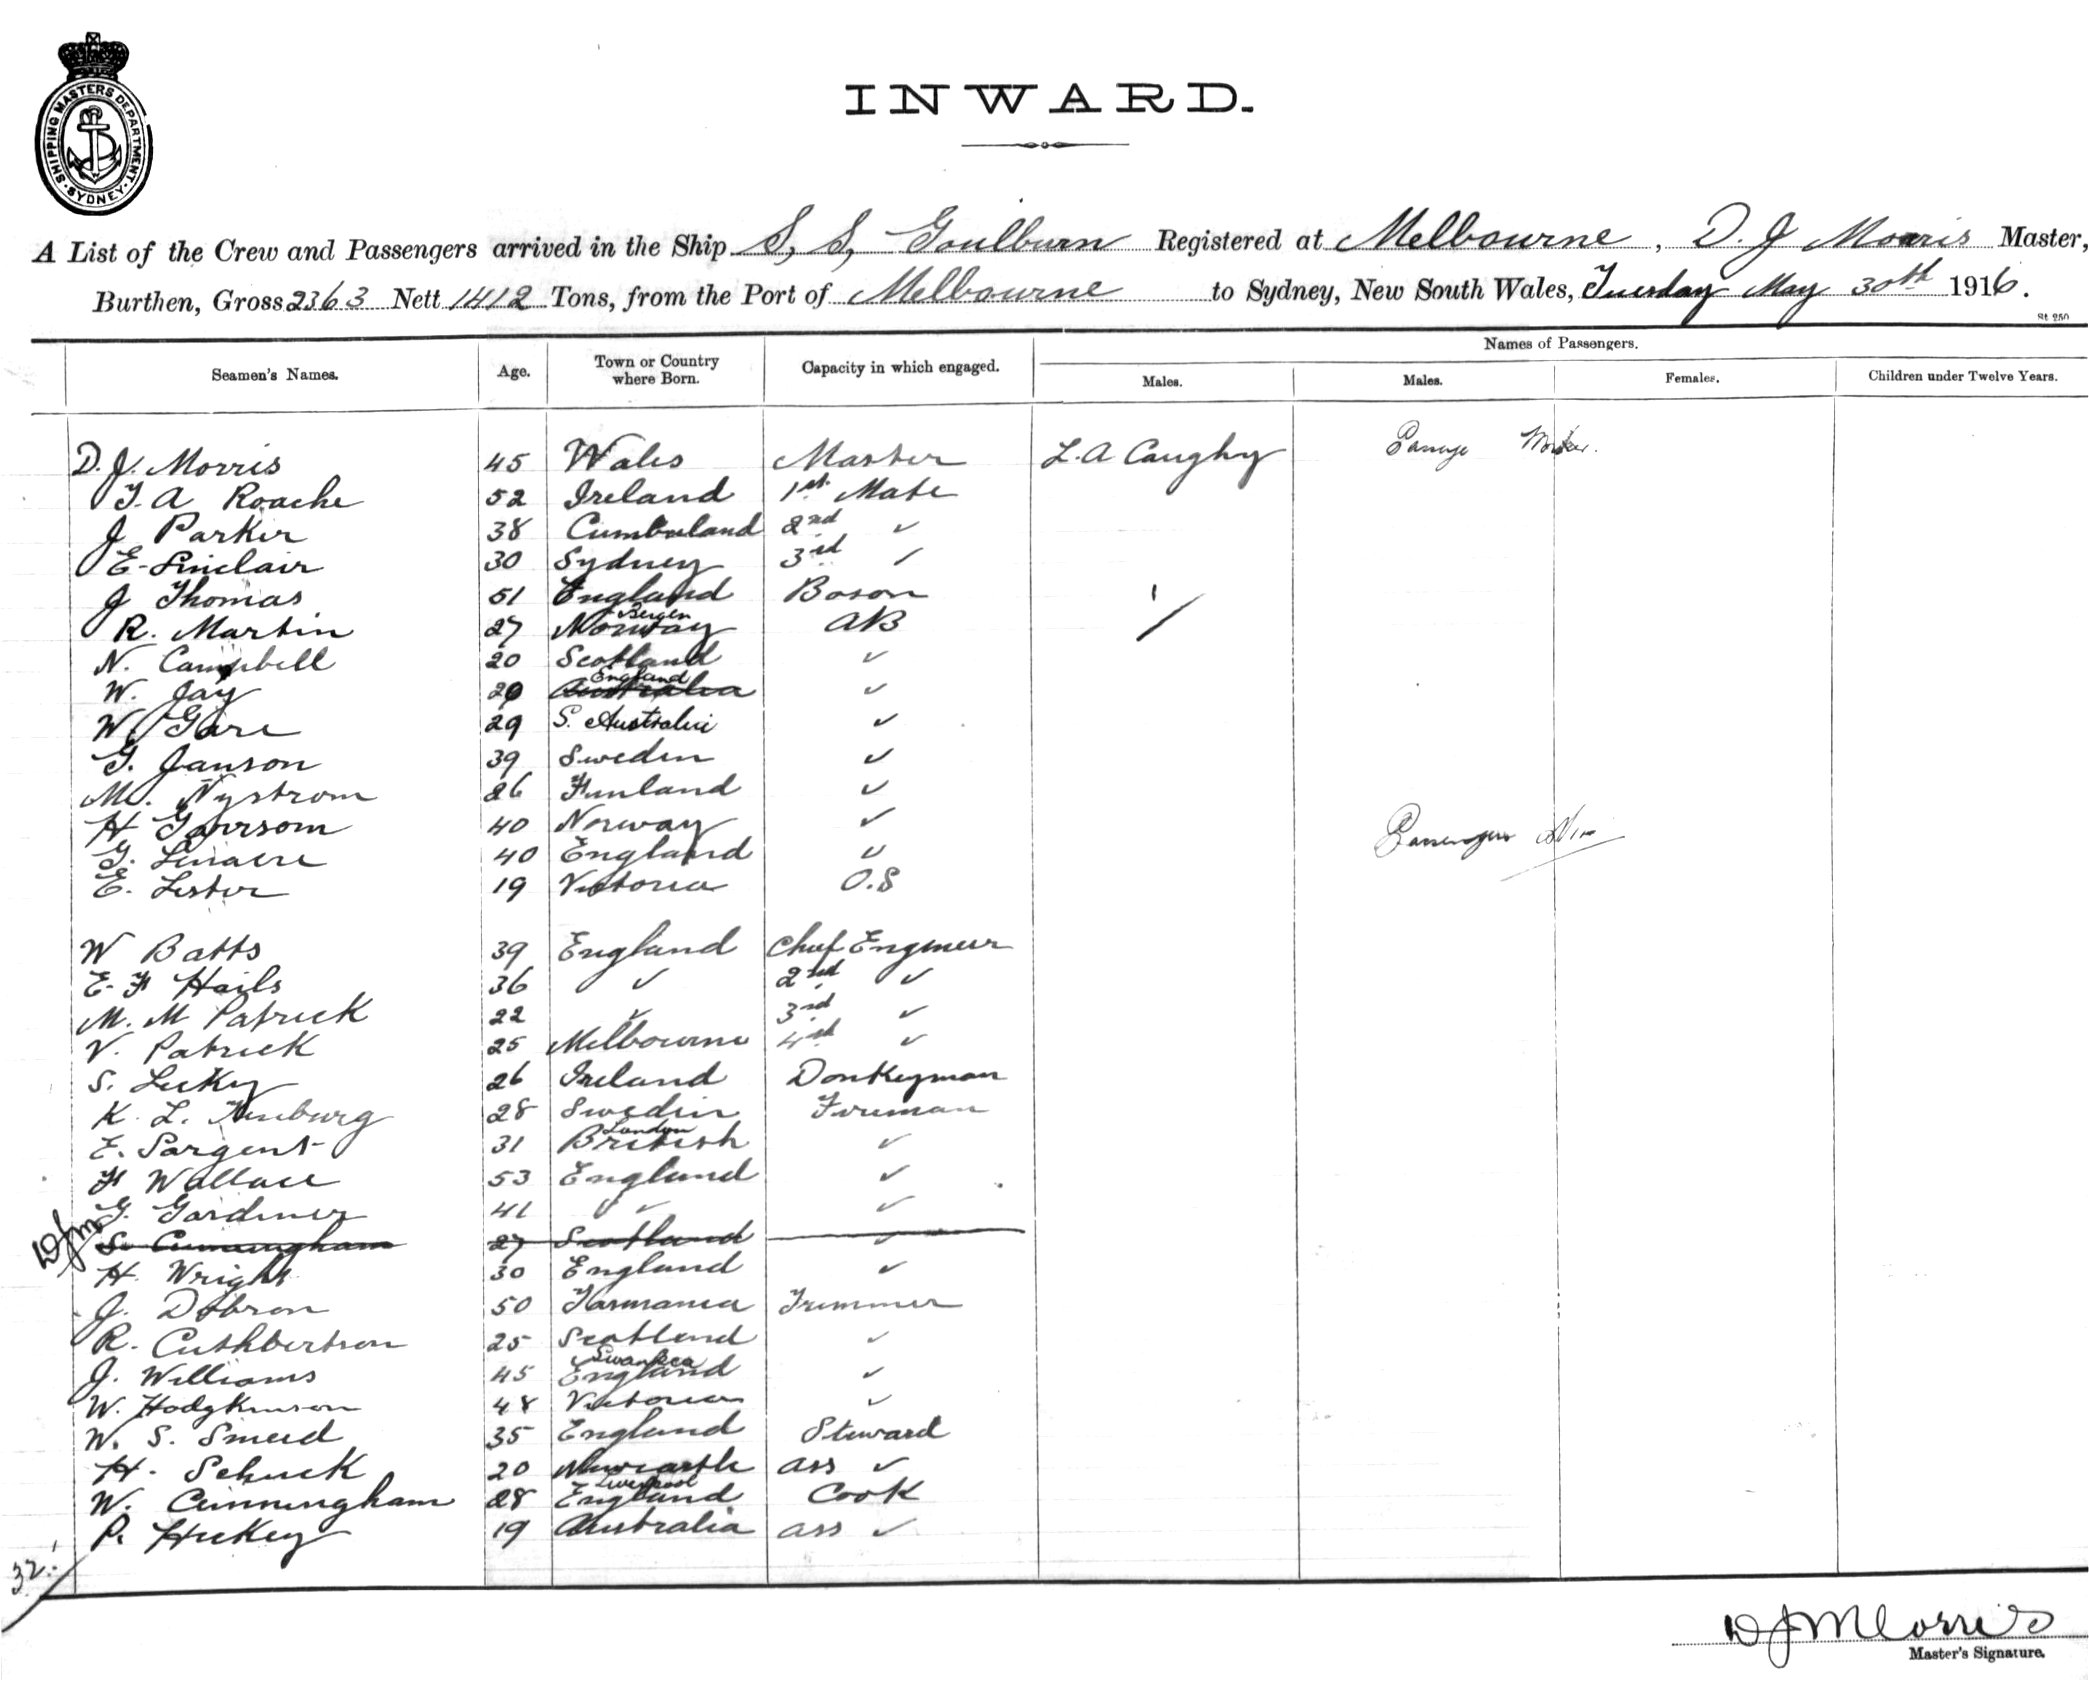 SHIPPING MASTERS DEPARTMENT. SYDNEY.
INWARD.
A List of the Crew and Passengers arrived in the Ship S, S, Goulburn Registered at Melbourne, D. J Morris Master,
Burthen, Gross 2363 Nett 1412 Tons, from the Port of Melbourne to Sydney, New South Wales, Tuesday May 30th 1916.
St 250
Names of Passengers.
Seamen's Names. Age. Town or Country where Born. Capacity in which engaged. Males. Males. Females. Children under Twelve Years.
D. J. Morris 45 Wales Master L. A Caughy Passage Worker.
T. A Roache 52 Ireland 1st Mate
J Parker 38 Cumberland 2nd ✓
E. Sinclair 30 Sydney 3rd ✓
J Thomas 51 England Boson 1
R. Martin 27 Norway Bergen AB
N. Campbell 20 Scotland ✓
W. Jay 20 Australia England ✓
W. Gare 29 S. Australia ✓
G. Janson 39 Sweden ✓
M. Nystrom 26 Finland ✓
H 40 Norway ✓
G. Linacre 40 England ✓ Passengers Nil
E. Lester 19 Victoria O.S
W Batts 39 England Chief Engineer
E. F Hails 36 ✓ 2nd ✓
M. M Patrick 22 ✓ 3rd ✓
V. Patrick 25 Melbourne 4th ✓
S. Lecky 26 Ireland Donkeyman
K. L. 28 Sweden Fireman
E. Sargent 31 British London ✓
F Wallace 53 England ✓
G. Gardiner 41 ✓ ✓ ✓
DJM S. Cunningham 27 Scotland ✓
H. Wright 30 England ✓
J. Dobson 50 Tasmania Trimmer
R. Cuthbertson 25 Scotland ✓
J. Williams 45 England Swansea ✓
W. Hodgkinson 48 Victoria ✓
W. S. Smeed 35 England Steward
H. Schuck 20 Newcastle ass ✓
W. Cunningham 28 England Liverpool Cook
P. Hickey 19 Australia ass ✓
32
D J Morris
Master's Signature.